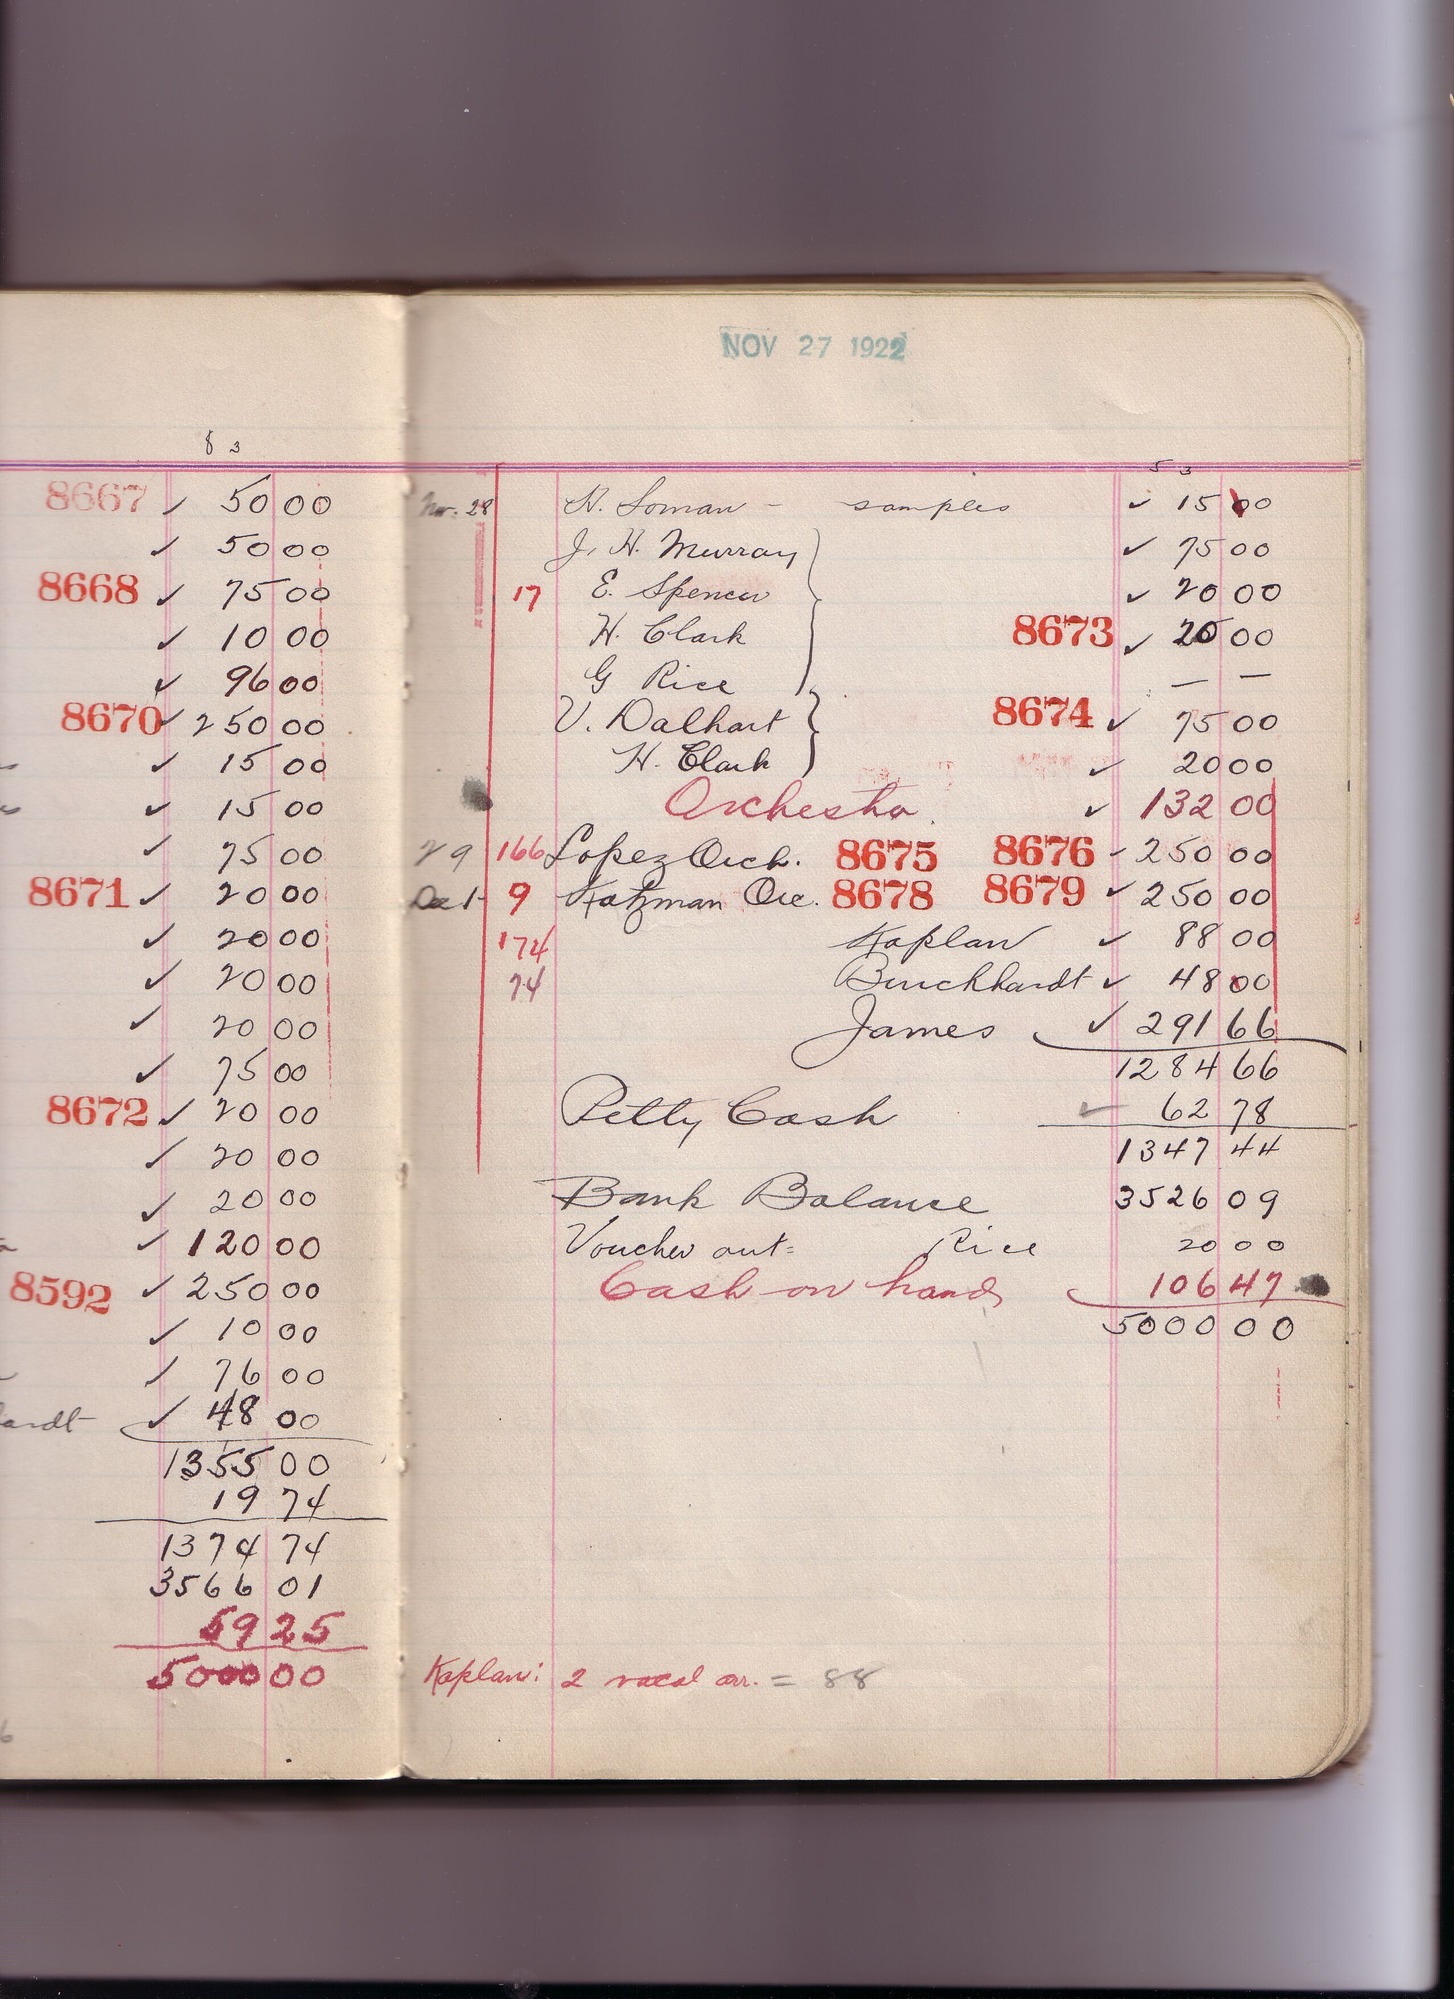 8 3
8667 ✓ 50 00
✓ 50 00
8668 ✓ 75 00
✓ 10 00
✓ 96 00
8670 ✓ 250 00
✓ 15 00
✓ 15 00
✓ 75 00
8671 ✓ 20 00
✓ 20 00
✓ 20 00
✓ 20 00
✓ 75 00
8672 ✓ 20 00
✓ 20 00
✓ 20 00
✓ 120 00
8592 ✓ 250 00
✓ 10 00
✓ 76 00
ardt ✓ 48 00
1355 00
19 74
1374 74
3566 01
59 25
5000 00
NOV 27 1922
5 3
Nov. 28 H. Loman - samples ✓ 15 00
J. H. Murray ✓ 75 00
17 E. Spencer ✓ 20 00
H. Clark 8673 ✓ 20 00
G Rice — —
V. Dalhart 8674 ✓ 75 00
H. Clark ✓ 20 00
Orchestra. ✓ 132 00
29 166 Lopez Orch. 8675 8676 ✓ 250 00
Dec 1 9 Katzman Orc. 8678 8679 ✓ 250 00
174 Kaplan ✓ 88 00
74 Burckhardt ✓ 48 00
James ✓ 291 66
1284 66
Petty Cash ✓ 62 78
1347 44
Bank Balance 3526 09
Voucher out = Rice 20 00
Cash on hand 106 47
5000 00
Kaplan: 2 vocal arr. = 88